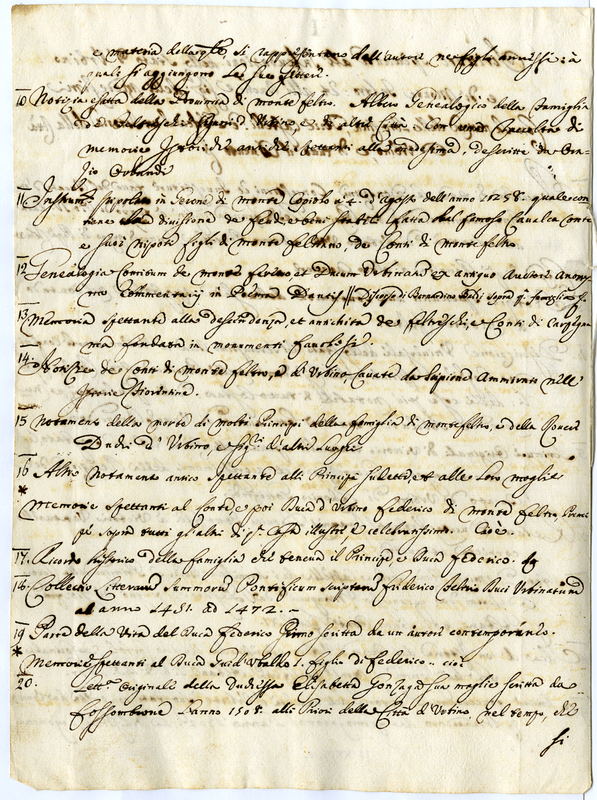 e materia della qle si rappresentano dall'autore ne fogli annessi: à
quali si aggiungono le sue lettere.
10 Notizia esatta della Provincia di monte feltro. Albero Genealogico della famiglia
de Urbino, e di altri con una raccolta di
memorie spettanti alla medesima, descritte da
Orlandi
11 Instrumto stipolato in Serone di monte Copiolo a 4 d'agosto dell'anno 1258. quale con
tiene divisione de feudi, e beni stabili fatta dal famoso Cavalca Conte
e suoi nipoti figli di monte feltrino de Conti di monte feltro
12 Genealogia Comitum de monte feltro, et Ducum Urbinatũ ex antiquo Auctore Anony
mo Commentarij in Poema Dantis // Discorso di Bernardino Baldi sopra
13 Memoria spettante alla descendenza, et antichità de feltreschi, e Conti di Carpegna
ma fondata in monumenti favolosi.
14. Notizie de Conti di monte feltro, e d'Urbino, cavate da Scipione Ammirato nell'
Istorie Fiorentine.
15 Notamento della morte di molti Principi della famiglia di montefeltro, e della Rovere
Duchi d'Urbino, e sigri d'altri luoghi
16 Altro notamento antico spettante alli Principi suddetti, et alle loro moglie
*
Memorie spettanti al Conte, e poi Duca d'Urbino Federico di monte feltro, Princi
pe sopra tutti gli altri di qta Casa illustre e celebratissimo. Cioè.
17. Ricordo historico della famiglia che teneva il Principe e Duca Federico.
18 Collectio litterarũ summorũ Pontificum scriptarũ Friderico Feltrio Duci Urbinatum
ab anno 1451. ad 1472. –
19 Parte della Vita del Duca Federico Primo scritta da un autore contemporaneo.
*
Memorie spettanti al Duca Guid'Ubaldo I. figlio di Federico .. cioè
20. Lettra originale della Duchessa Elisabetta Gonzaga sua moglie scritta da
fossombrone l'anno 1508. alli Priori della Città d'Urbino, nel tempo, che
si